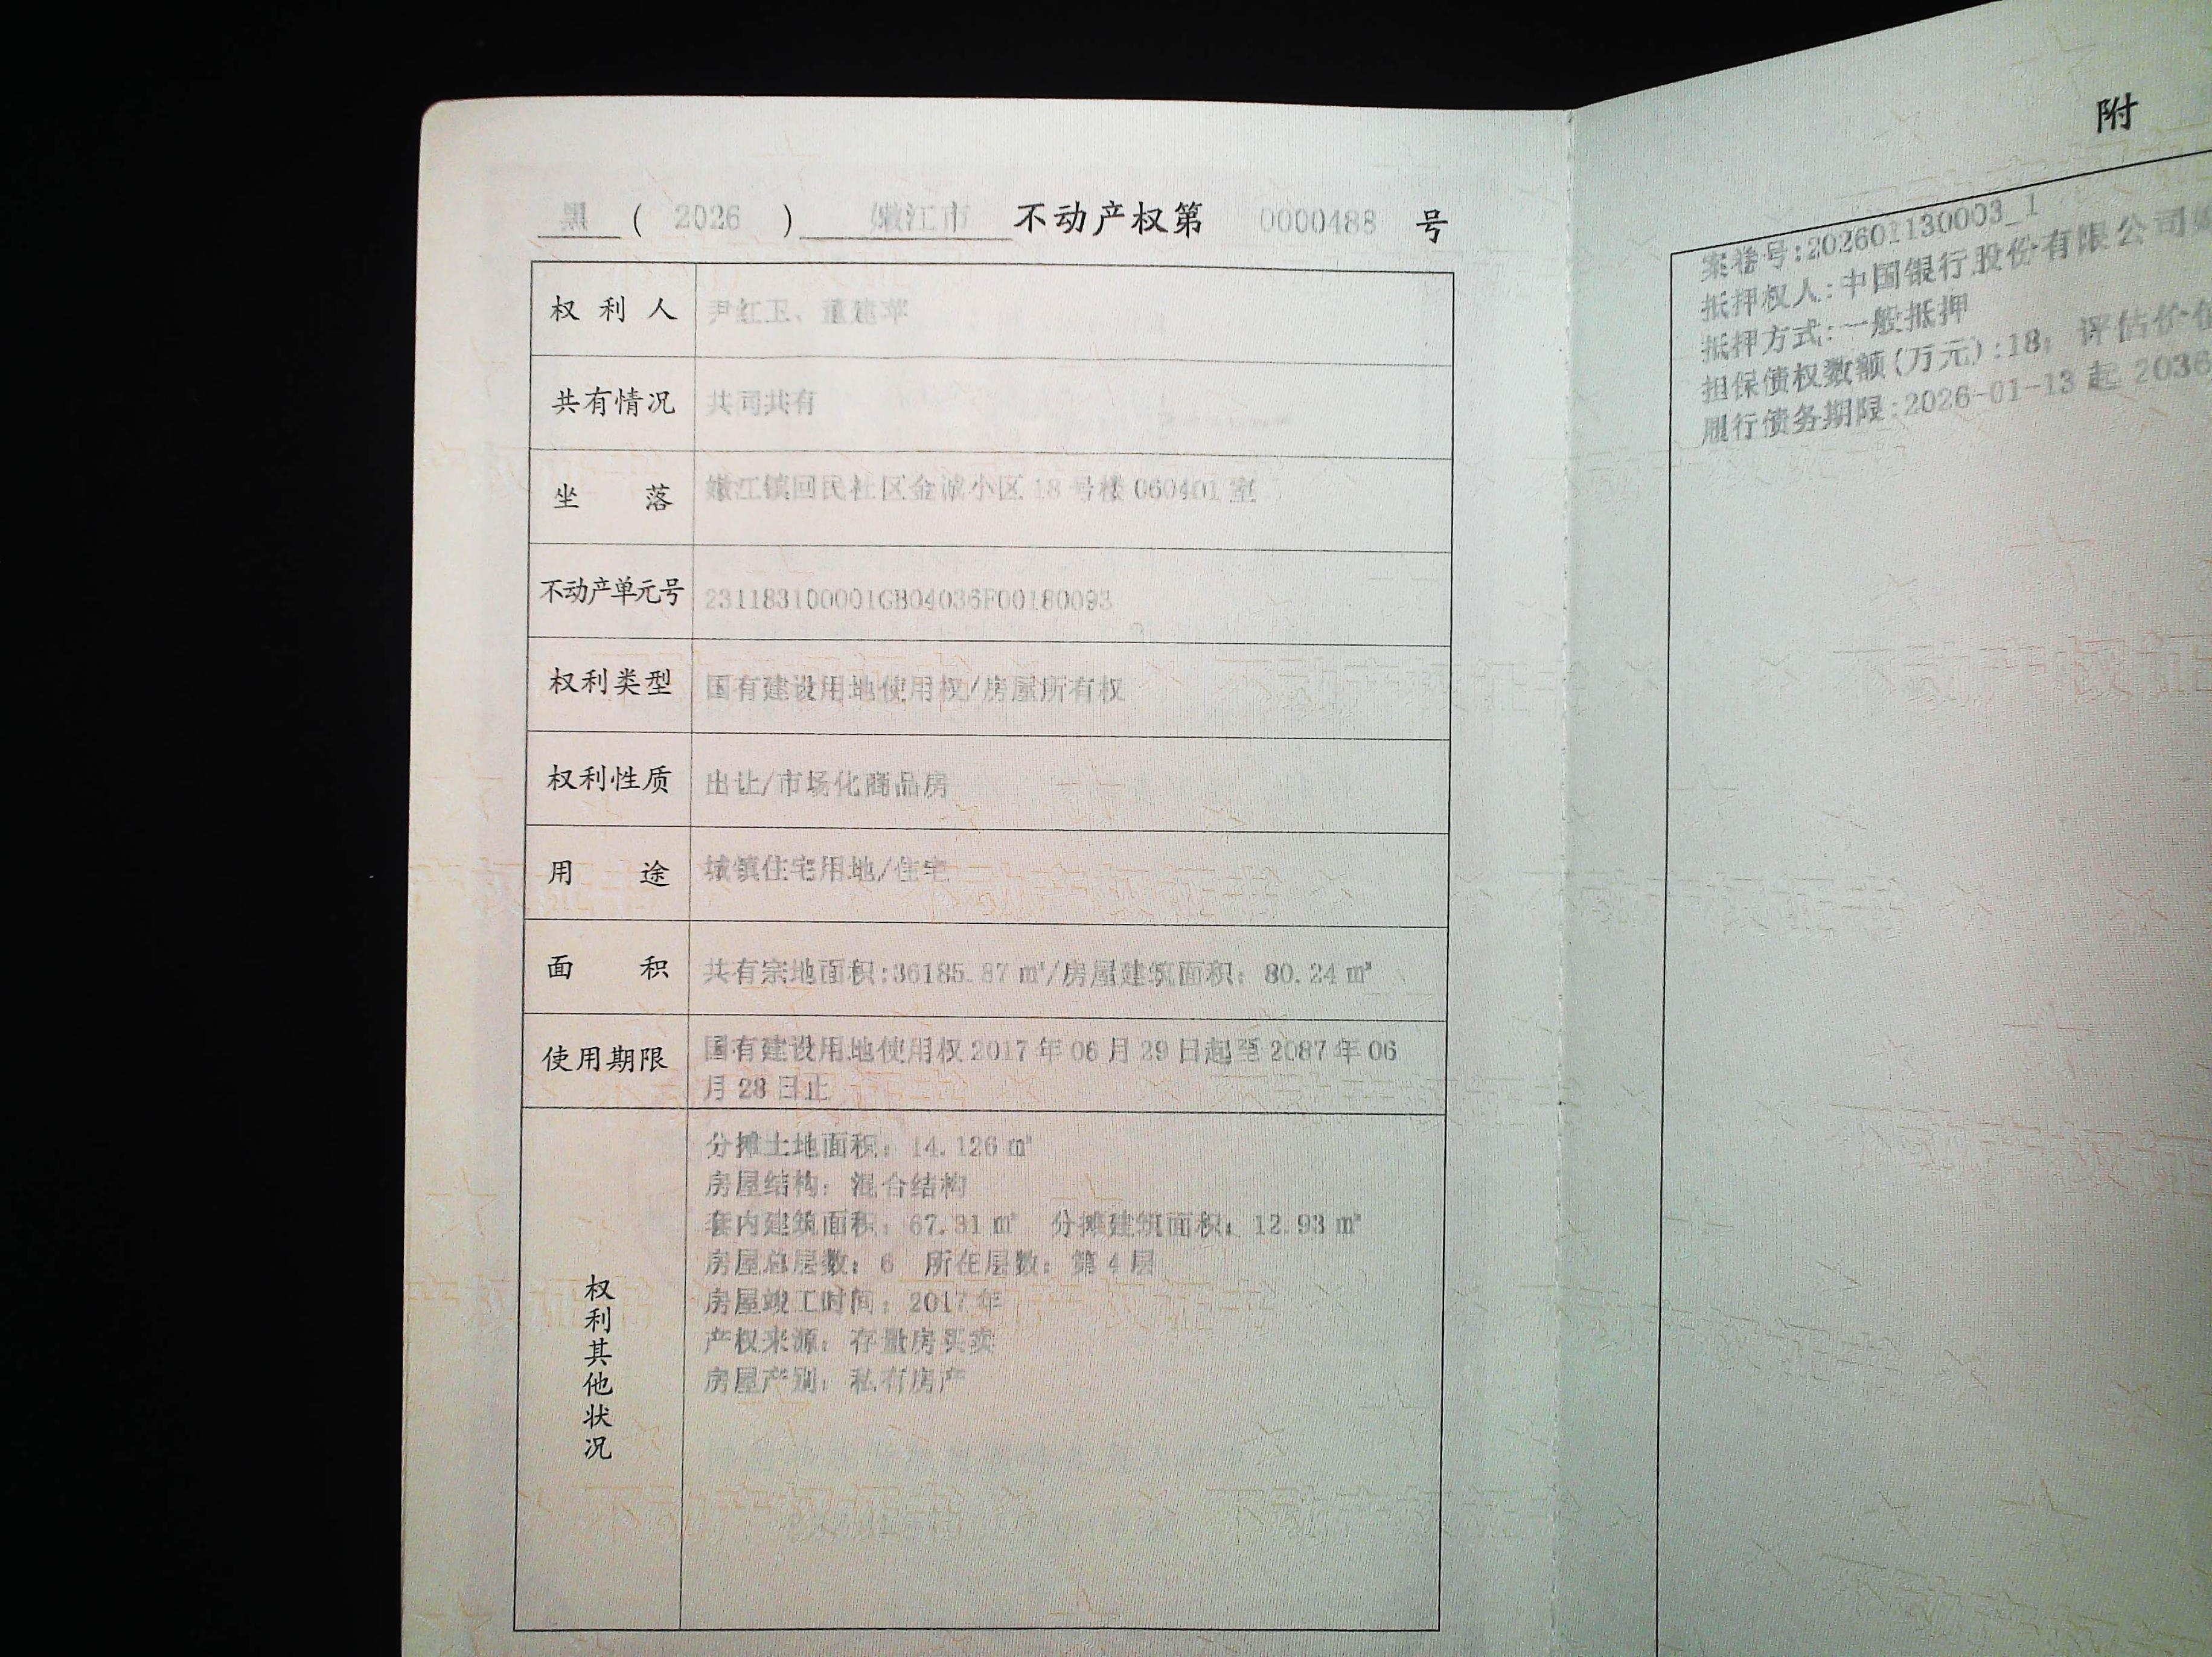 黑 ( 2026 ) 嫩江市 不动产权第 0000488 号
权利人 尹红卫、董建苹
共有情况 共同共有
坐落 嫩江镇回民社区金诚小区 18 号楼 060401 室
不动产单元号 231183100001GB04036F00180093
权利类型 国有建设用地使用权/房屋所有权
权利性质 出让/市场化商品房
用途 城镇住宅用地/住宅
面积 共有宗地面积:36185.87 ㎡/房屋建筑面积：80.24 ㎡
使用期限 国有建设用地使用权 2017 年 06 月 29 日起至 2087 年 06
月 28 日止
权利其他状况
分摊土地面积：14.126 ㎡
房屋结构：混合结构
套内建筑面积：67.31 ㎡ 分摊建筑面积：12.93 ㎡
房屋总层数：6 所在层数：第 4 层
房屋竣工时间：2017 年
产权来源：存量房买卖
房屋产别：私有房产
附
案卷号:202601130003_1
抵押权人:中国银行股份有限公司
抵押方式:一般抵押
担保债权数额(万元):18；评估价值
履行债务期限:2026-01-13 起 2036
不动产权证书